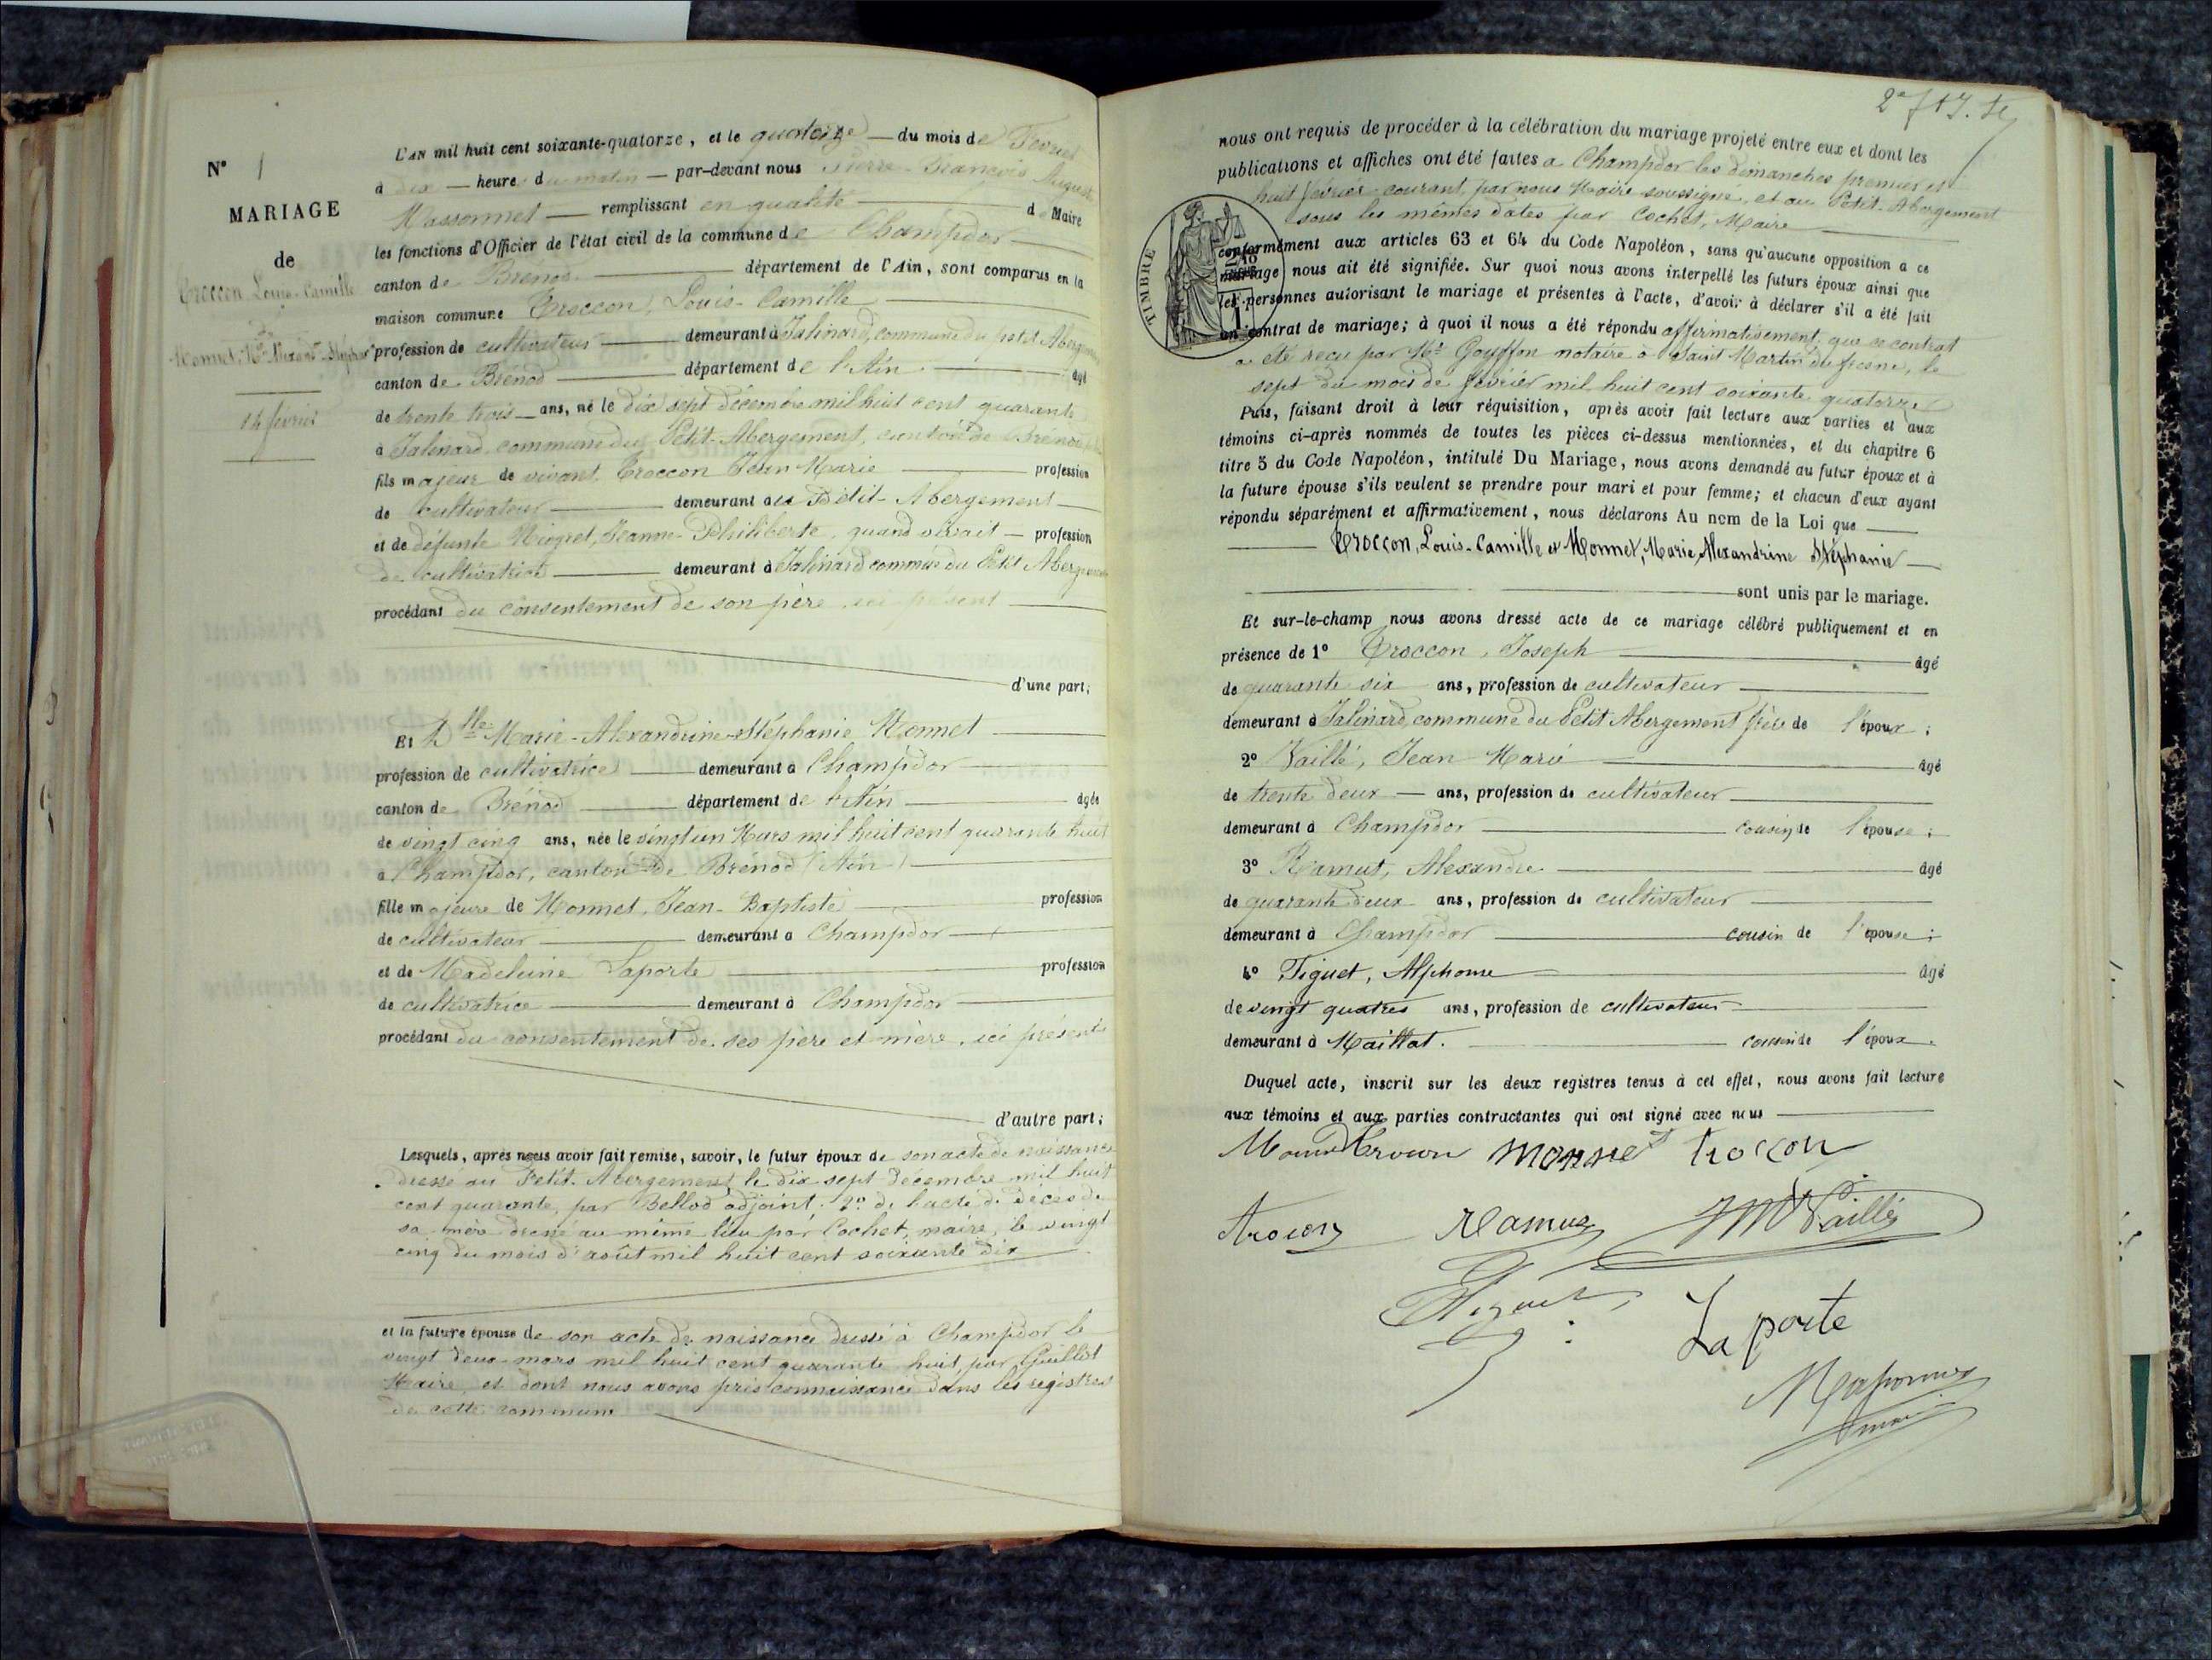 N° 1
MARIAGE
de
Troccon Louis-Camille
et
Monnet, Mie Alexandne Stéphanie
14 février
L'AN mil huit cent soixante-quatorze, et le quatorze du mois de Février
à dix heures du matin par-devant nous Pierre-François Auguste
Massonnet remplissant en qualité de Maire
les fonctions d'Officier de l'état civil de la commune de Champdor
canton de Brénod département de l'Ain, sont comparus en la
maison commune Troccon, Louis-Camille
profession de cultivateur demeurant à Jalinard, commune du petit Abergement
canton de Brénod département de l'Ain âgé
de trente trois ans, né le dix sept décembre mil huit cent quarante
à Jalinard commune du Petit-Abergement, canton de Brénod
fils majeur de vivant Troccon Jean Marie profession
de cultivateur demeurant au Petit-Abergement
et de défunte Jeanne-Philiberte, quand vivait profession
de cultivatrice demeurant à Jalinard commune du Petit Abergement
procédant du consentement de son père, ici présent
d'une part;
Et Dlle Marie-Alexandrine-Stéphanie Monnet
profession de cultivatrice demeurant à Champdor
canton de Brénod département de l'Ain âgée
de vingt cinq ans, née le vingt un Mars mil huit cent quarante huit
à Champdor, canton de Brénod (Ain)
fille majeure de Monnet, Jean-Baptiste profession
de cultivateur demeurant à Champdor
et de Madeleine Laporte profession
de cultivatrice demeurant à Champdor
procédant du consentement de ses père et mère, ici présents
d'autre part;
Lesquels, après nous avoir fait remise, savoir, le futur époux de son acte de naissance
dressé au Petit-Abergement le dix sept décembre mil huit
cent quarante, par Bellod adjoint; 2° de l'acte de décès de
sa mère dressé au même lieu par Cochet, maire, le vingt
cinq du mois d'août mil huit cent soixante dix
et la future épouse de son acte de naissance dressé à Champdor le
vingt deux mars mil huit cent quarante huit, par Guillot
Maire, et dont nous avons pris connaissance dans les registres
de cette commune
nous ont requis de procéder à la célébration du mariage projeté entre eux et dont les
publications et affiches ont été faites à Champdor les dimanches premier et
huit février courant, par nous Maire soussigné, et au Petit-Abergement
sous les mêmes dates par Cochet, Maire
TIMBRE
conformément aux articles 63 et 64 du Code Napoléon, sans qu'aucune opposition à ce
mariage nous ait été signifiée. Sur quoi nous avons interpellé les futurs époux ainsi que
les personnes autorisant le mariage et présentes à l'acte, d'avoir à déclarer s'il a été fait
un contrat de mariage; à quoi il nous a été répondu affirmativement, que ce contrat
a été reçu par Me Gouffon notaire à Saint Martin du fresne, le
sept du mois de février mil huit cent soixante quatorze
Puis, faisant droit à leur réquisition, après avoir fait lecture aux parties et aux
témoins ci-après nommés de toutes les pièces ci-dessus mentionnées, et du chapitre 6
titre 5 du Code Napoléon, intitulé Du Mariage, nous avons demandé au futur époux et à
la future épouse s'ils veulent se prendre pour mari et pour femme; et chacun d'eux ayant
répondu séparément et affirmativement, nous déclarons Au nom de la Loi que
Troccon, Louis-Camille et Monnet, Marie Alexandrine Stéphanie
sont unis par le mariage.
Et sur-le-champ nous avons dressé acte de ce mariage célébré publiquement et en
présence de 1° Troccon, Joseph âgé
de quarante six ans, profession de cultivateur
demeurant à Jalinard, commune du Petit Abergement frère de l'époux;
2° Vaillé, Jean Marie âgé
de trente deux ans, profession de cultivateur
demeurant à Champdor cousin de l'épouse;
3° Ramut, Alexandre âgé
de quarante deux ans, profession de cultivateur
demeurant à Champdor cousin de l'épouse;
4° Figuet, Alphonse âgé
de vingt quatres ans, profession de cultivateur
demeurant à Maillat. cousin de l'époux.
Duquel acte, inscrit sur les deux registres tenus à cet effet, nous avons fait lecture
aux témoins et aux parties contractantes qui ont signé avec nous
monnet trocon
Ramuz JM Vaillé
Figuet
La porte